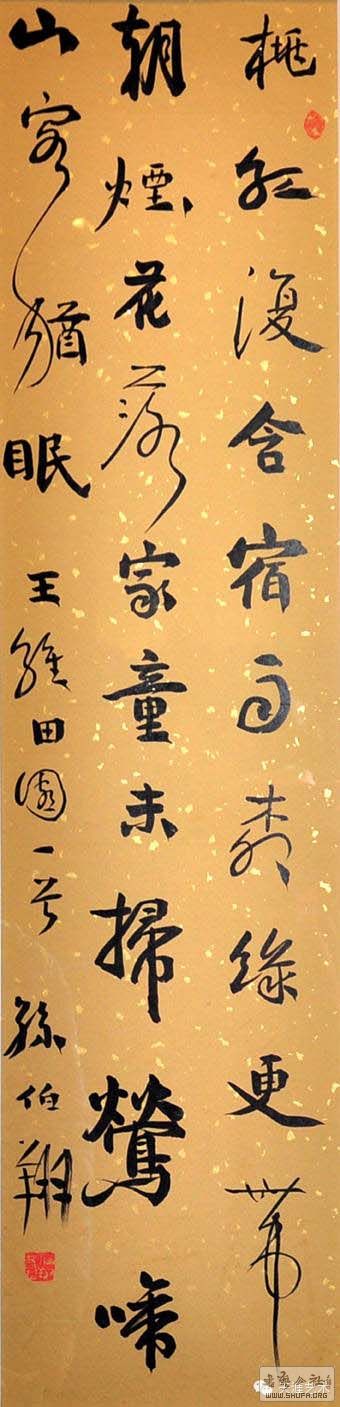 桃紅復含宿雨柳綠更帶
朝煙花落家童未掃鶯啼
山客猶眠 王維田園一首 孫伯翔
WWW.SHUFA.ORG